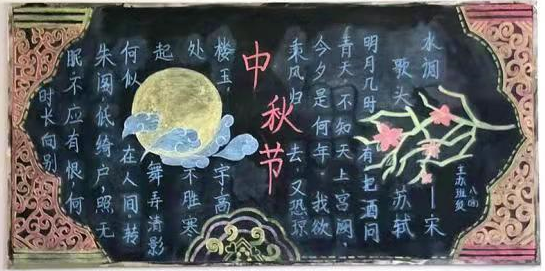 水调
歌头
——宋
苏轼
明月几时有把酒问
青天 不知天上宫阙,
今夕是何年。我欲
乘风归去,又恐琼
中秋节
楼玉宇,高
处不胜寒
起舞弄清影
何似在人间。转
朱阁,低绮户,照无
眠不应有恨,何
时长向别